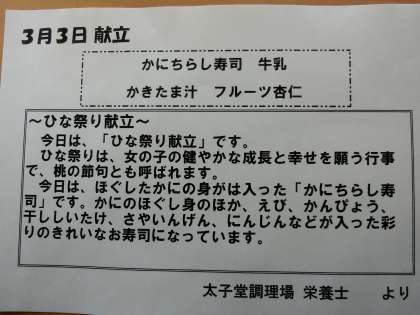 3月3日 献立
かにちらし寿司　牛乳
かきたま汁　フルーツ杏仁
～ひな祭り献立～
　今日は、「ひな祭り献立」です。
　ひな祭りは、女の子の健やかな成長と幸せを願う行事
で、桃の節句とも呼ばれます。
　今日は、ほぐしたかにの身がは入った「かにちらし寿
司」です。かにのほぐし身のほか、えび、かんぴょう、
干ししいたけ、さやいんげん、にんじんなどが入った彩
りのきれいなお寿司になっています。
太子堂調理場 栄養士　　より